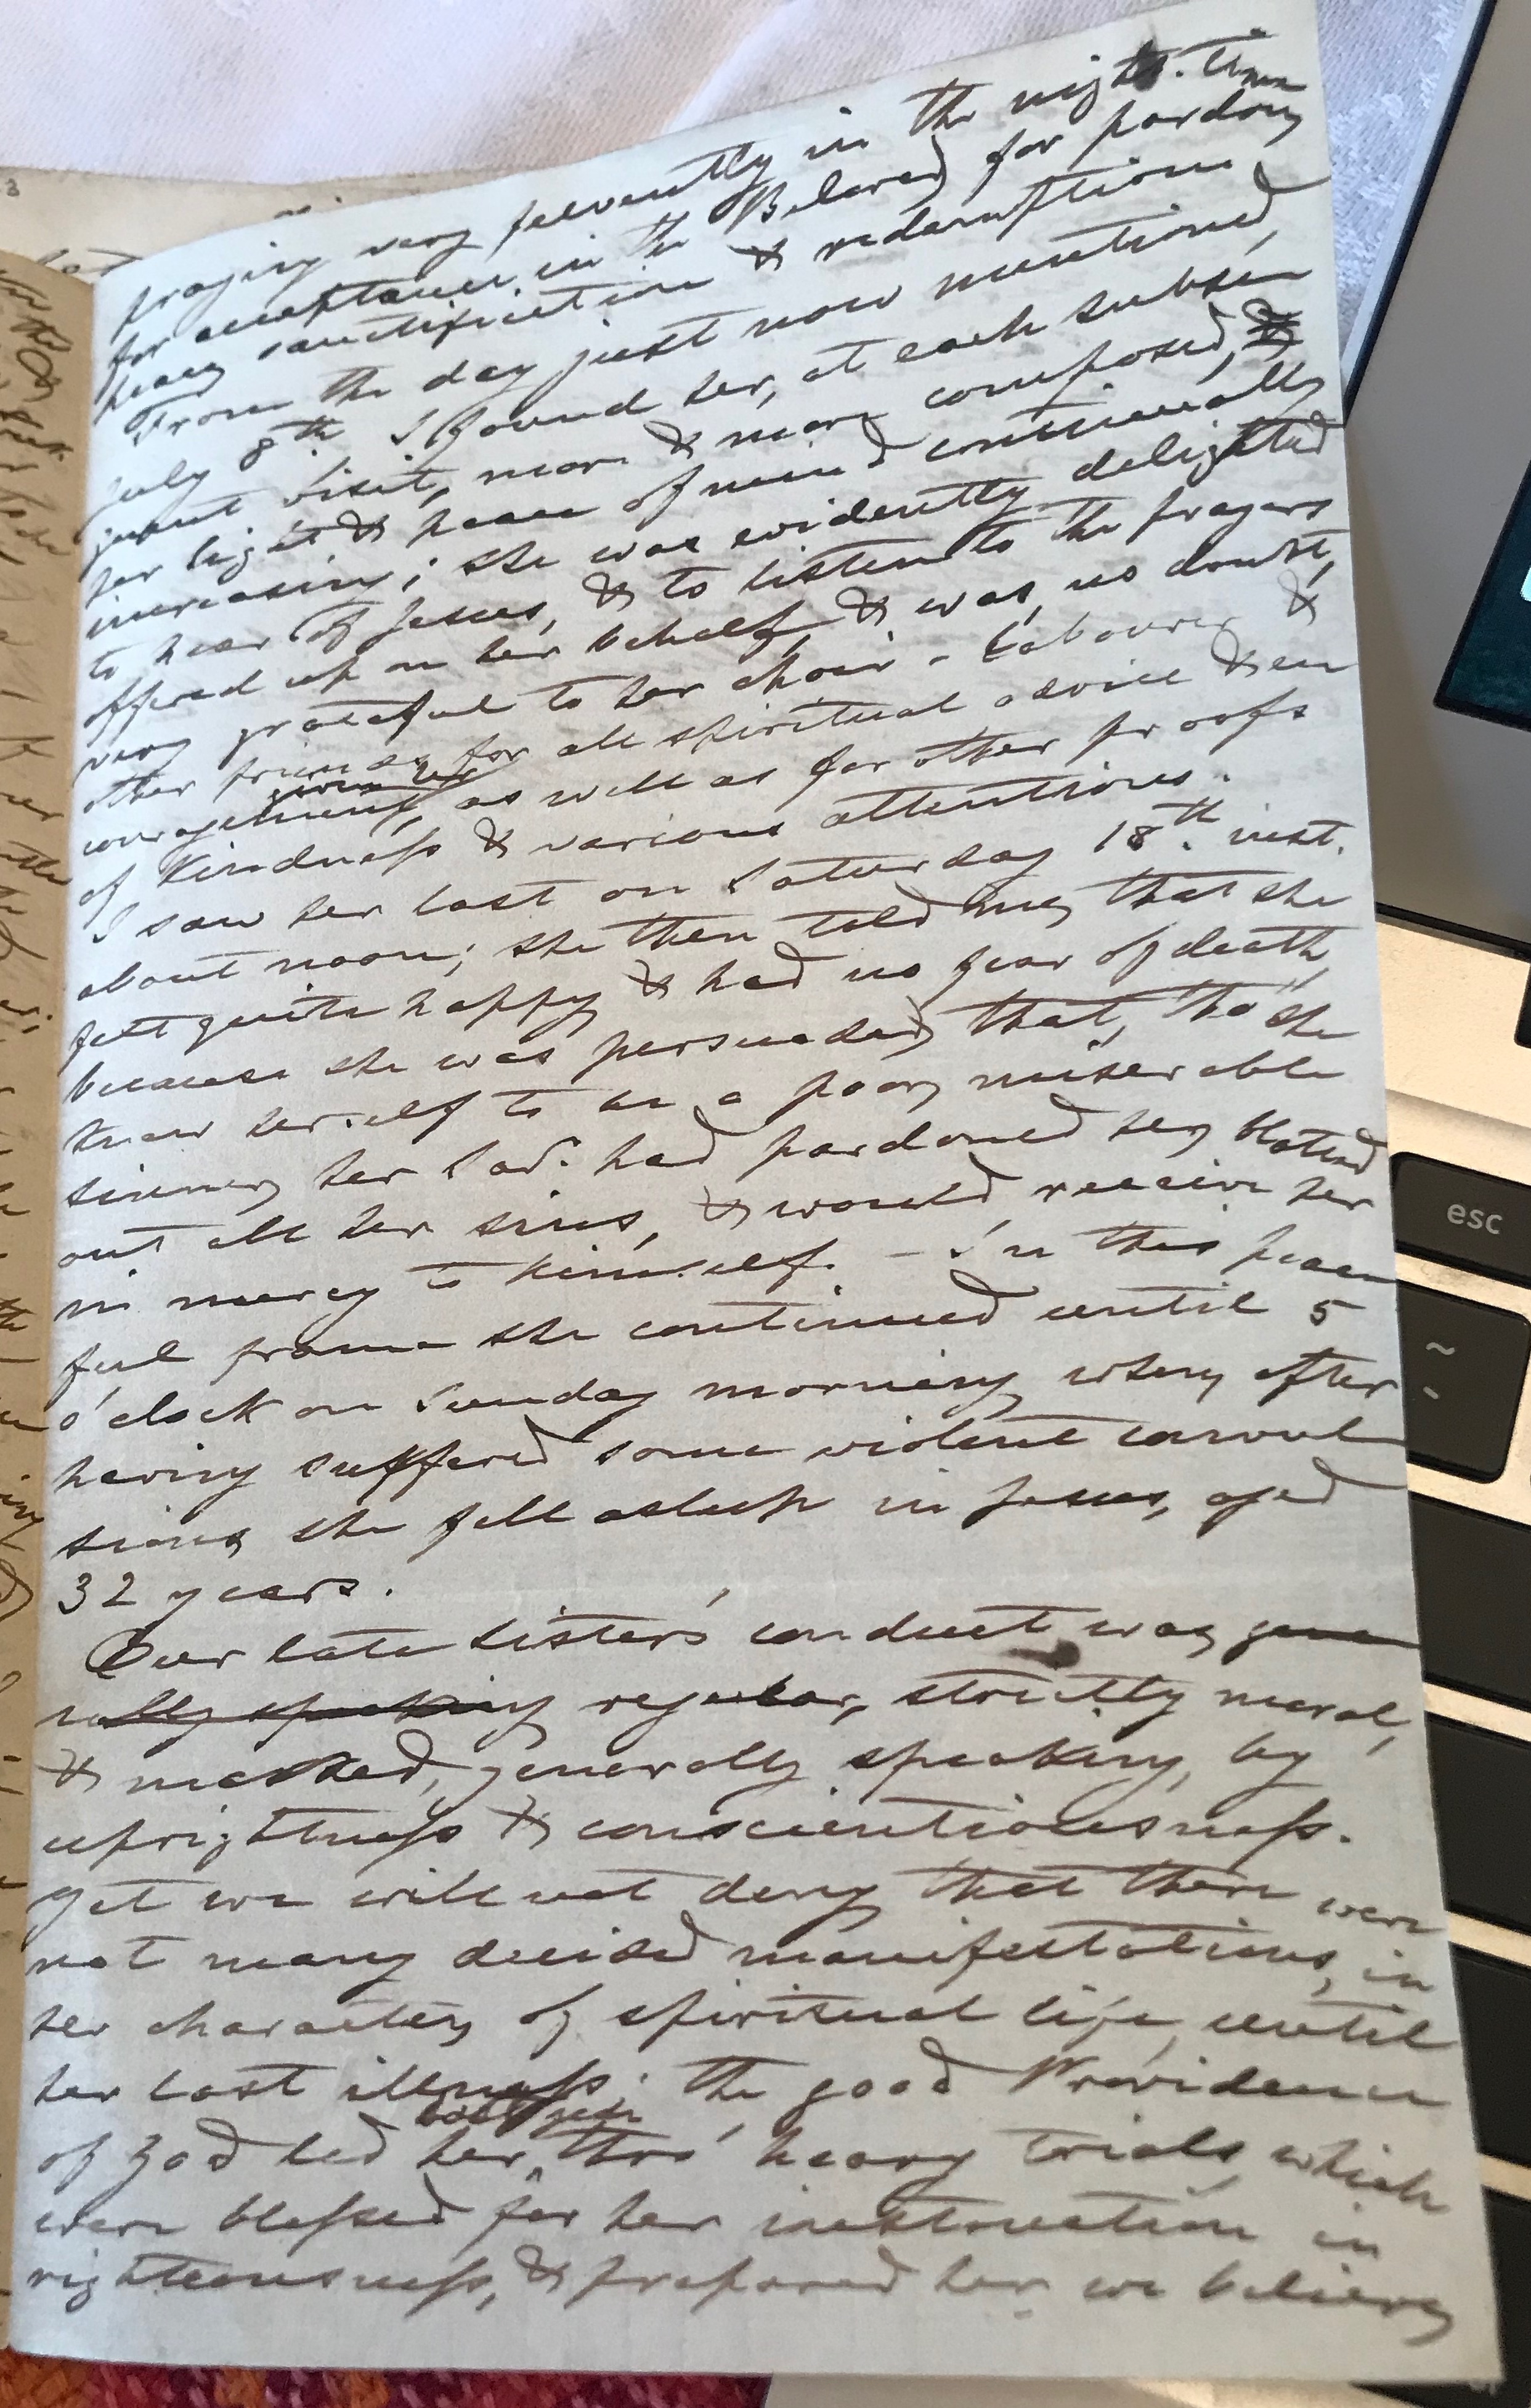 praying very fervently in the night-time
for acceptance in the Beloved, for pardon,
peace, sanctification & redemption.
From the day just now mentioned,
July 8th I found her, at each subse
quent visit, more & more composed,
her light & peace of mind continually
increasing; she was evidently delighted
to hear of Jesus, & to listen to the prayers
offered up on her behalf, & was, no doubt,
very grateful to her choir-labourer &
other friends for all spiritual advice & en
couragement given her, as well as for other proofs
of kindness & various attentions.
I saw her last on Saturday 18th. inst.
about noon; she then told me, that she
felt quite happy & had no fear of death,
because she was persuaded that, tho' she
knew herself to be a poor, miserable
sinner, her Savr. had pardoned her, blotted
out all her sins, & would receive her
in mercy to himself. - In this peace
ful frame she continued until 5
o'clock on Sunday morning, when, after
having suffered some violent convul
sions, she fell asleep in Jesus, aged
32 years.
Our late Sister's conduct was gene
rally speaking regular, strictly moral,
& marked, generally speaking, by
uprightness & conscientiousness.
Yet we will not deny that there were
not many decided manifestations, in
her character, of spiritual life, until
her last illness; the good Providence
of God led her, thro' heavy trials, which
were blessed for her instruction in
righteousness, & prepared her, we believe,
esc
~